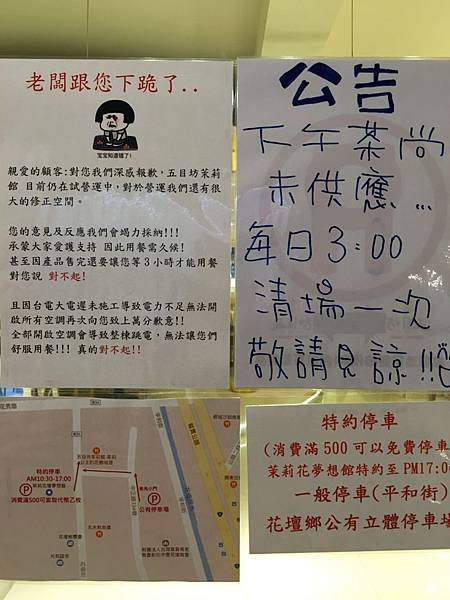 老闆跟您下跪了..
宝宝知道错了!
親愛的顧客:對您我們深感報歉,五目坊茉莉
館 目前仍在試營運中,對於營運我們還有很
大的修正空間。
您的意見及反應我們會竭力採納!!!
承蒙大家愛護支持 因此用餐需久候!
甚至因產品售完還要讓您等3小時才能用餐
對您說 對不起!
且因台電大電遲未施工導致電力不足無法開
啟所有空調再次向您致上萬分歉意!!
全部開啟空調會導致整棟跳電,無法讓您們
舒服用餐!!! 真的對不起!!
公告
下午茶尚
未供應...
每日3:00
清場一次
敬請見諒!!
特約停車
AM10:30-17:00
消費滿500可索取代幣乙枚
P
公有停車場
特約停車
(消費滿500可以免費停車
茉莉花夢想館特約至PM17:0
一般停車(平和街)
花壇鄉公有立體停車場